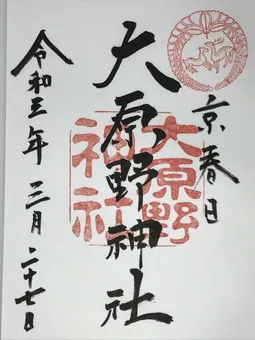 京春日
大原野神社
大原野
神社
令和五年三月二十七日